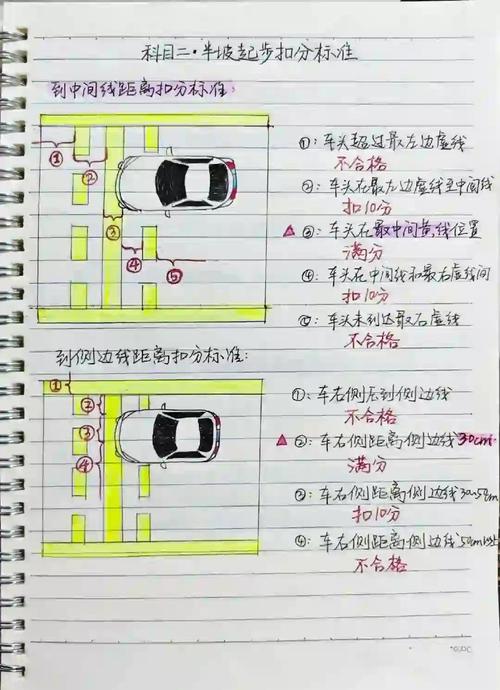 科目二·半坡起步扣分标准
到中间线距离扣分标准:
①
②
③
④
⑤
①: 车头超过最左边虚线
不合格
②: 车头在最左边虚线至中间线
扣10分
③: 车头在最中间黄线位置
满分
④: 车头在中间线和最右虚线间
扣10分
⑤: 车头未到达最右虚线
不合格
到侧边线距离扣分标准:
①
②
③
④
①: 车右侧压到侧边线
不合格
②: 车右侧距离侧边线30cm
满分
③: 车右侧距离侧边线30~50cm
扣10分
④: 车右侧距离侧边线50cm以上
不合格